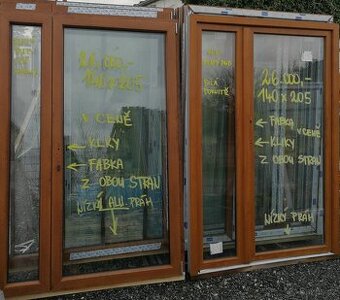 26.000,-
140 x 205
V CENĚ
← KLIKY
← FABKA
Z OBOU STRAN
NÍZKÝ ALU PRÁH
26.000,-
140 x 205
← FABKA
V CENĚ
← KLIKY
Z OBOU STRAN
NÍZKÝ PRÁH